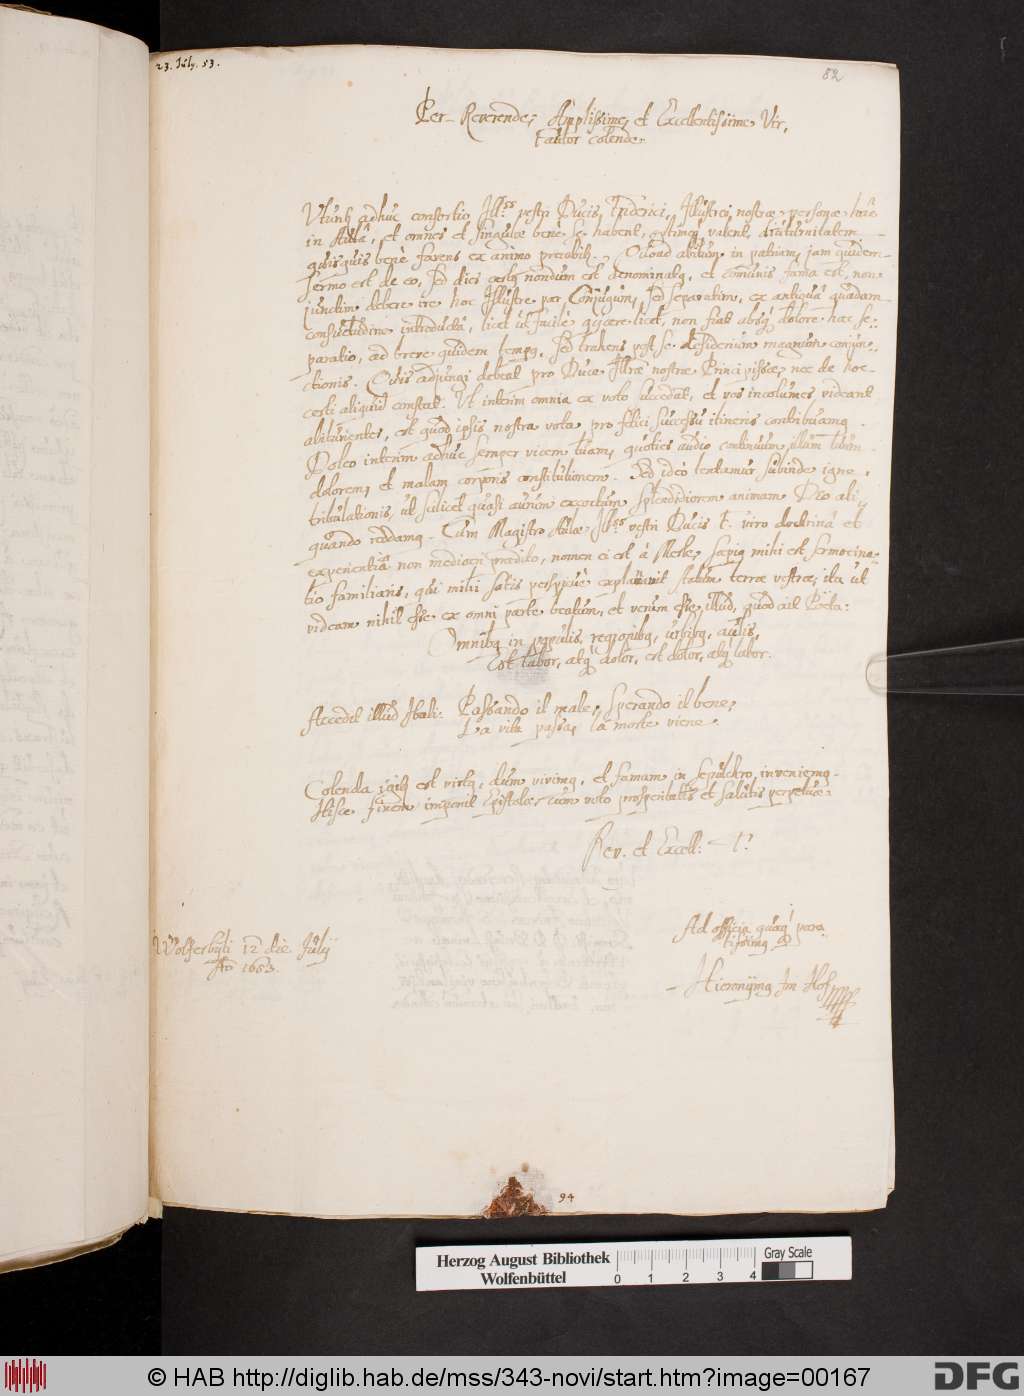 23. July. 53.
82
Per Reverende, Applissime, et Excellentissime Vir,
Fautor colende.
adhuc consortio Ill.ss vestri Ducis, Friderici, Illustres nostræ personæ hac
in Aula, et omnes et singulæ bene se habent, valent, diuturnitatem
quisquis bene favens ex animo precabit. Quoad abitum in patriam, jam quidem
sermo est de eo, sed dies certq nondum est denominatq, et comunis fama est, non
junctim debere ire hoc Illustre par Conjugum, sed separatim, ex antiqua quadam
consuetudine introducta, licet ut facile licet, non fiat absq dolore hac se,,
paratio, ad breve quidem tempq, sed trahens post se desiderium magnum conjun,,
ctionis. Quis adjungi debeat pro Duce Illræ nostræ Principissæ, nec de hoc
certi aliquid constat. Ut interim omnia ex voto succedat, et vos incolumes videant
abiturientes, est quod ipsis nostra vota pro felici successu itineris contribuamq.
Doleo interim adhuc semper vicem tuam, quoties audio continuum illum tuum
dolorem, et malam corporis constitutionem. Sed ideo tentamur subinde igne
tribulationis, ut scilicet quasi aurum excoctum splendidiorem animam Deo ali,,
quando reddamq. Cum Magistro Aulæ Ill.ss vestri Ducis F. viro doctrina et
experientia non mediocri prædito, nomen ei est à Merle, sæpiq mihi est sermocina,,
tio familiaris, qui mihi satis explanavit statum terræ vestræ, ita ut
videam nihil esse ex omni parte beatum, et verum esse, illud, quod ait Poeta:
Omnibq in populis, regionibq, urbibq, aulis,
Est labor, atq dolor, est dolor, atq labor.
Accedit illud Itali: Passando il male, sperando il bene,
La vita passa, la morte viene.
Colenda est virtq, dum vivimq, et famam in sepulchro inveniemq.
Hisce finem imponit Epistolæ, cum voto prosperitatis et salutis perpetuæ
Rev. et Excell: T.
Ad officia quæq para
tissimq
Wolferbyti 12 die July
Ao 1653.
Hieronymq Im Hof
94
Herzog August Bibliothek
Wolfenbüttel
0 1 2 3 4
Gray Scale
© HAB http://diglib.hab.de/mss/343-novi/start.htm?image=00167
DFG